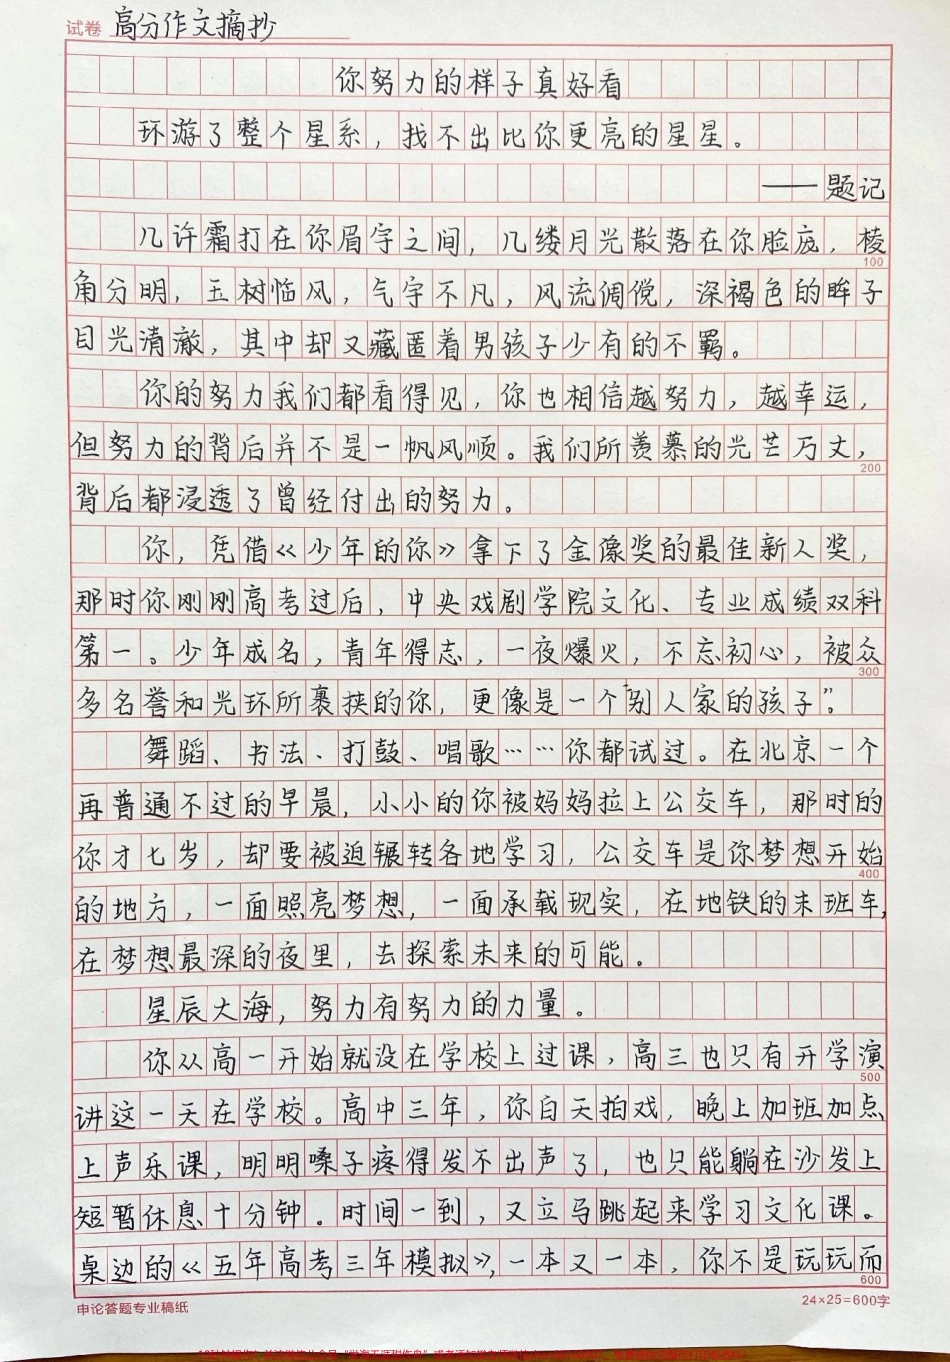 试卷 高分作文摘抄
你努力的样子真好看
环游了整个星系，找不出比你更亮的星星。
——题记
几许霜打在你眉宇之间，几缕月光散落在你脸庞，棱
100
角分明，玉树临风，气宇不凡，风流倜傥，深褐色的眸子
目光清澈，其中却又藏匿着男孩子少有的不羁。
你的努力我们都看得见，你也相信越努力，越幸运，
但努力的背后并不是一帆风顺。我们所羡慕的光芒万丈，
200
背后都浸透了曾经付出的努力。
你，凭借《少年的你》拿下了金像奖的最佳新人奖，
那时你刚刚高考过后，中央戏剧学院文化、专业成绩双科
第一。少年成名，青年得志，一夜爆火，不忘初心，被众
300
多名誉和光环所裹挟的你，更像是一个“别人家的孩子”。
舞蹈、书法、打鼓、唱歌……你都试过。在北京一个
再普通不过的早晨，小小的你被妈妈拉上公交车，那时的
你才七岁，却要被迫辗转各地学习，公交车是你梦想开始
400
的地方，一面照亮梦想，一面承载现实，在地铁的末班车，
在梦想最深的夜里，去探索未来的可能。
星辰大海，努力有努力的力量。
你从高一开始就没在学校上过课，高三也只有开学演
500
讲这一天在学校。高中三年，你白天拍戏，晚上加班加点
上声乐课，明明嗓子疼得发不出声了，也只能躺在沙发上
短暂休息十分钟。时间一到，又立马跳起来学习文化课。
桌边的《五年高考三年模拟》，一本又一本，你不是玩玩而
600
申论答题专业稿纸
24×25=600字